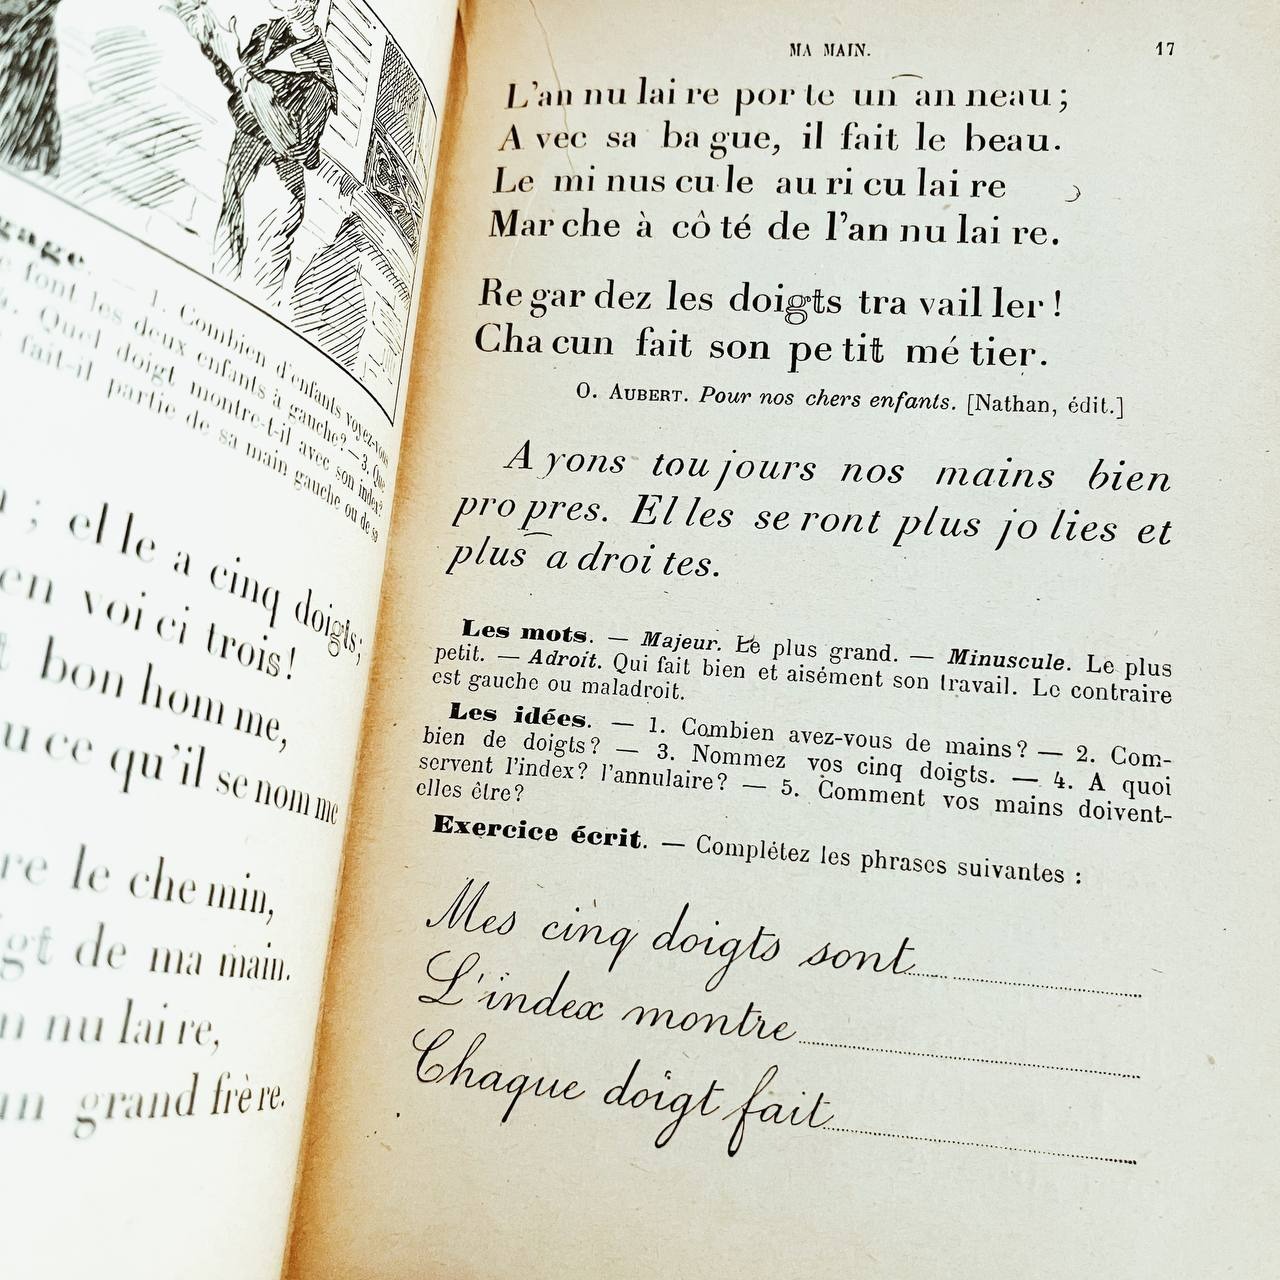 gage. — 1. Combien d'enfants voyez-vous
font les deux enfants à gauche? — 3. Que
Quel doigt montre-t-il avec son index?
fait-il partie de sa main gauche ou de sa
; el le a cinq doigts;
en voi ci trois!
bon hom me,
ce qu'il se nom me
re le che min,
gt de ma main.
n nu lai re,
un grand frè re.
MA MAIN. 17
L'an nu lai re por te un an neau;
A vec sa ba gue, il fait le beau.
Le mi nus cu le au ri cu lai re
Mar che à cô té de l'an nu lai re.
Re gar dez les doigts tra vail ler!
Cha cun fait son pe tit mé tier.
O. AUBERT. Pour nos chers enfants. [Nathan, édit.]
A yons tou jours nos mains bien
pro pres. El les se ront plus jo lies et
plus a droi tes.
Les mots. — Majeur. Le plus grand. — Minuscule. Le plus
petit. — Adroit. Qui fait bien et aisément son travail. Le contraire
est gauche ou maladroit.
Les idées. — 1. Combien avez-vous de mains? — 2. Com-
bien de doigts? — 3. Nommez vos cinq doigts. — 4. A quoi
servent l'index? l'annulaire? — 5. Comment vos mains doivent-
elles être?
Exercice écrit. — Complétez les phrases suivantes :
Mes cinq doigts sont
L'index montre
Chaque doigt fait